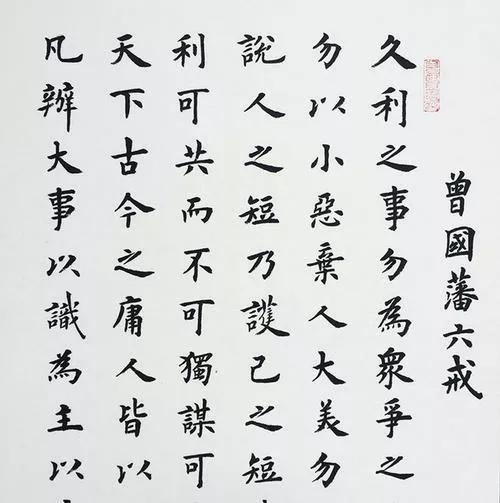 曾國藩六戒
久利之事勿為衆爭之
勿以小惡棄人大美勿
說人之短乃護己之短
利可共而不可獨謀可
天下古今之庸人皆以
凡辦大事以識為主以